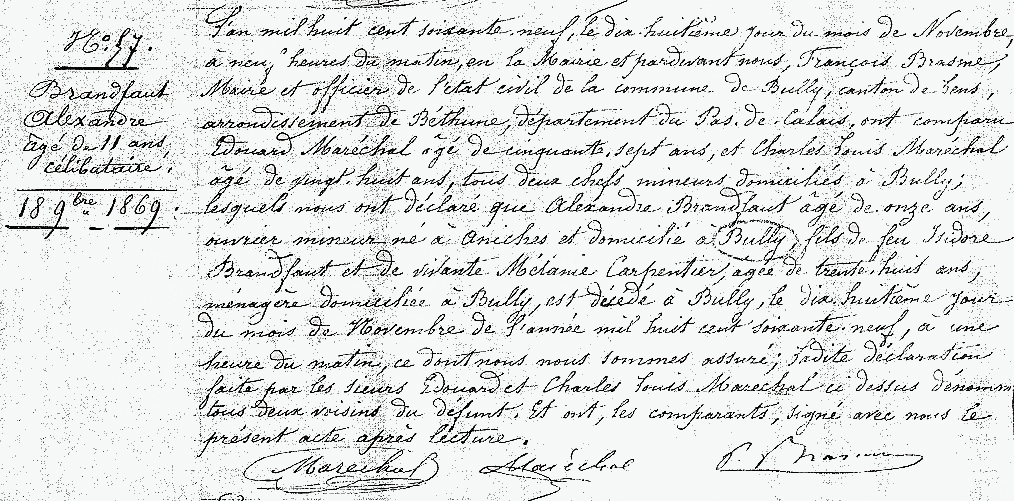 N° 57.
Brandfaut
Alexandre
âgé de 11 ans,
célibataire.
18 9bre 1869.
L'an mil huit cent soixante-neuf, le dix-huitième jour du mois de Novembre,
à neuf heures du matin, en la Mairie et pardevant nous, François Brasme,
Maire et officier de l'état civil de la commune de Bully, canton de Lens,
arrondissement de Béthune, département du Pas-de-Calais, ont comparu
Edouard Maréchal âgé de cinquante-sept ans, et Charles Louis Maréchal
âgé de vingt-huit ans, tous deux chefs mineurs domiciliés à Bully;
lesquels nous ont déclaré que Alexandre Brandfaut âgé de onze ans,
ouvrier mineur né à Aniches et domicilié à Bully, fils de feu Isidore
Brandfaut et de vivante Mélanie Carpentier, agée de trente-huit ans,
ménagère domiciliée à Bully, est décédé à Bully, le dix-huitième jour
du mois de Novembre de l'année mil huit cent soixante-neuf, à une
heure du matin, ce dont nous nous sommes assuré; ladite déclaration
faite par les sieurs Edouard et Charles Louis Maréchal ci dessus dénomm
tous deux voisins du défunt. Et ont, les comparants, signé avec nous le
présent acte après lecture.
Marechal Maréchal F Brasme